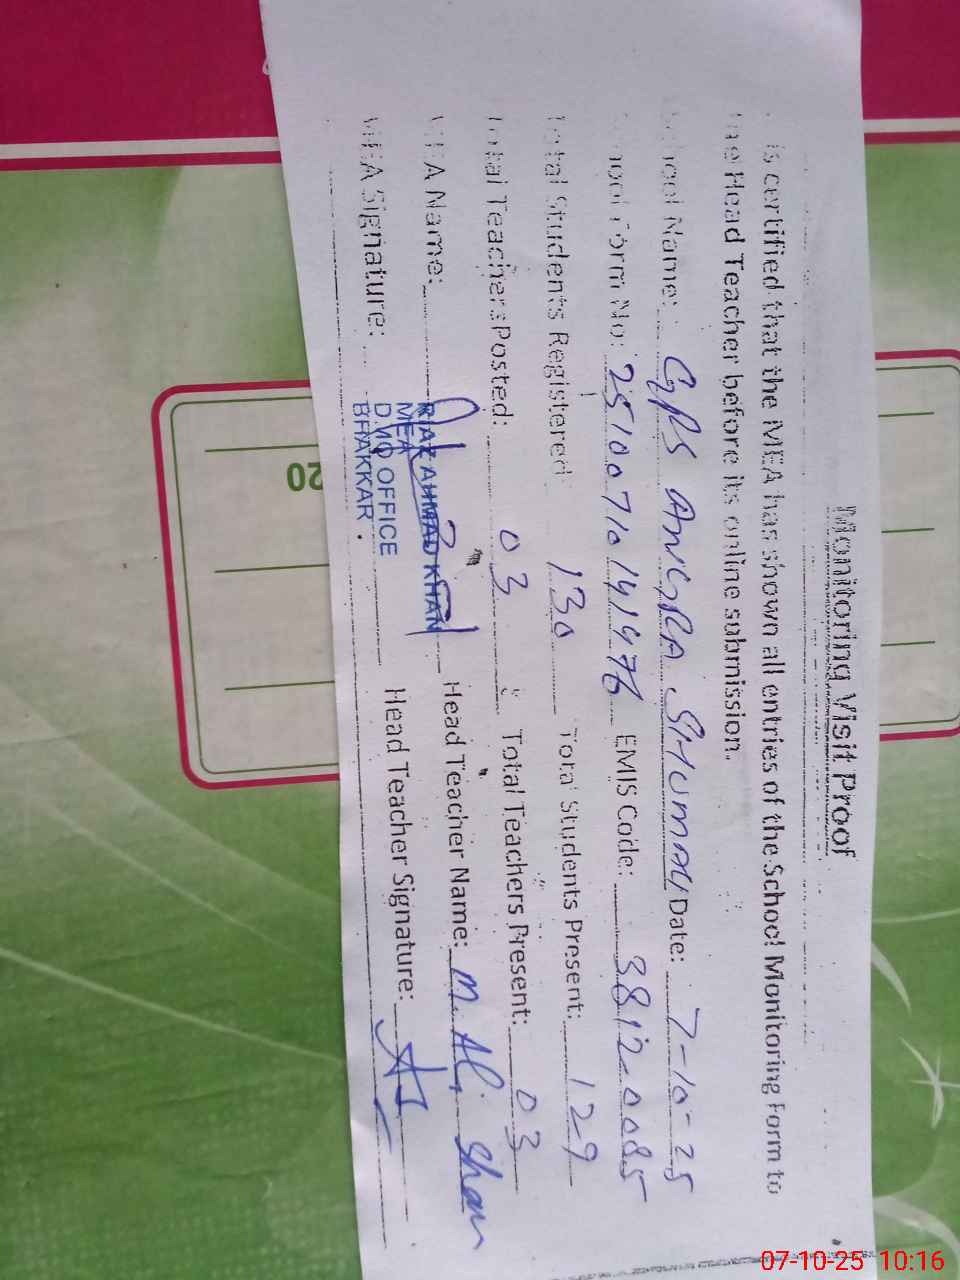 Monitoring Visit Proof
is certified that the MEA has shown all entries of the School Monitoring Form to
the Head Teacher before its online submission.
School Name: GPS ANGRA GHUMAN Date: 7-10-25
Form No: 25100710141476 EMIS Code: 38120085
Total Students Registered 130 Total Students Present: 129
Total Teachers Posted: 03 Total Teachers Present: 03
MEA Name: Head Teacher Name: M. Ali Shan
MEA Signature: Head Teacher Signature:
RIAZ AHMAD KHAN
MEA
DMO OFFICE
BHAKKAR
20
07-10-25 10:16